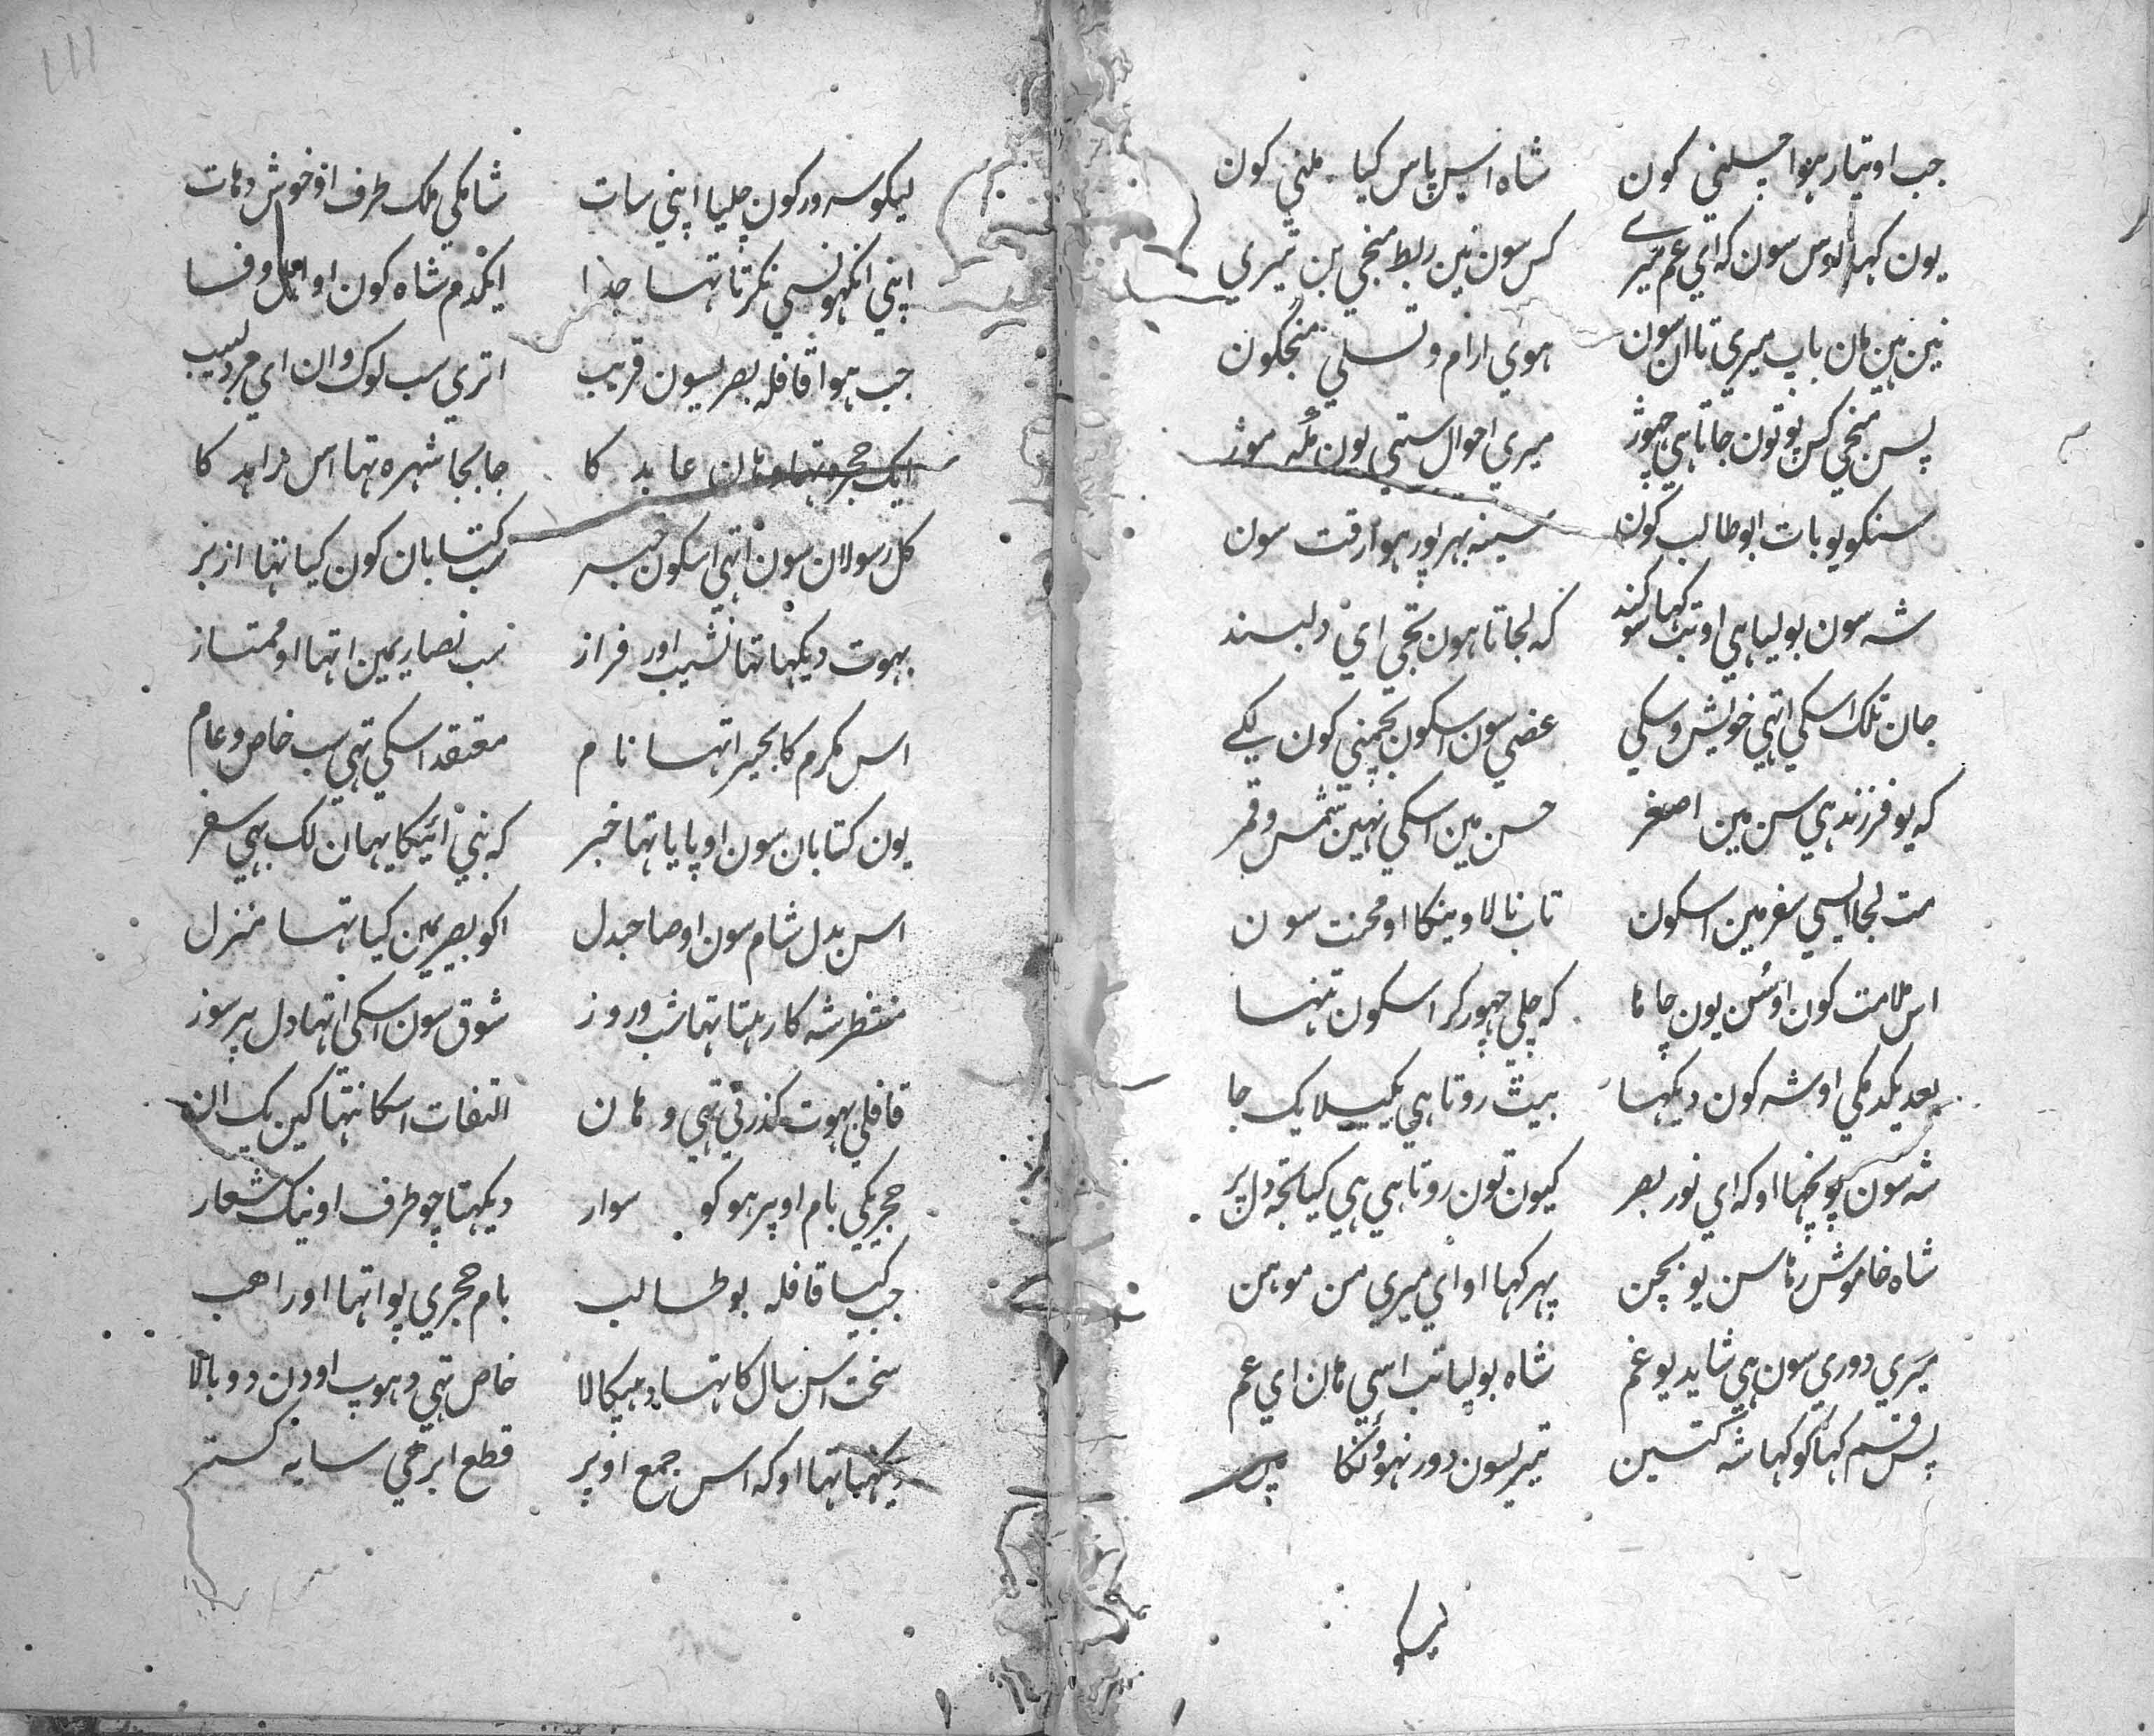 جب او تیار ہوا چلنی کون شاہ اس پاس کیا ملنی کون
یون کہا اوس سون کہ ای عم میرے کس سون نین ربط منجی بن تیری
نین ہین مان باپ میری تا ان سون ہوی ارام و تسلی منجکون
پس منجی کس پو تون جاتا ہی چہوڑ میری احوال ستی یون مکہ موڑ
سنکو یو بات ابو طالب کون سینہ بہر پور ہوا رقت سون
شہ سون بولیا ہی او تب کہا سوکند کہ لجاتا ہون تجی ای دلبند
جان تلک اسکی اتہی خویش و سکی عضی سون اسکون تجہنی کون لکے
کہ یو فرزند ہی سن مین اصغر حسن مین اسکی نہین شمس و قمر
مت لجا ایسی سفر مین اسکون تاب نالاوینکا او محنت سون
اس ملامت کون او سن یون چاہا کہ چلی چہوڑ کر اسکون تنہا
بعد یکدمکی او شہ کون دیکہا بیٹ روتا ہی یکیلا یک جا
شہ سون پونچہا او کہ ای نور بصر کیون تون روتا ہی ہی کیا تجہ دل پر
شاہ خاموش رہا سن یو بچن پہر کہا او ای میری من موہن
میری دوری سون ہی شاید یو غم شاہ بولیا تب اسی ہان ای عم
پس قسم کہا کو کہا شہ کتین تیریسون دور نہوونکا مین
لیکو
لیکو سرور کون چلیا اپنی سات شامکی ملک طرف او خوش دہات
اپنی انکہونسی نکرتا تہا جدا ایکدم شاہ کون او اہل وفا
جب ہوا قافلہ بصریسون قریب اتری سب لوک وان ای مرد لبیب
ایک حجرہ تہا وہان عابد کا جابجا شہرہ تہا اس زاہد کا
کل رسولان سون اتہی اسکون خبر سب کتابان کون کیا تہا ازبر
بہوت دیکہا تہا نشیب اور فراز سب نصاریمین اتہا او ممتاز
اس مکرم کا بحیرا تہا نام معتقد اسکی تہی سب خاص و عام
یون کتابان سون او پایا تہا خبر کہ نبی ائیکا یہان لک بہی سفر
اس بدل شام سون او صاحبدل اکو بصریمین کیا تہا منزل
منتظر شہ کا رہتا تہا شب و روز شوق سون اسکی اتہا دل پر سوز
قافلی بہوت کذرتی تہی وہان التفات اسکا نتہا کین یک ان
حجریکی بام اوپر ہو کو سوار دیکہتا چو طرف او نیک شعار
جب کیا قافلہ بو طالب بام حجری پو اتہا او راہب
سخت اس سال کا تہا دہپکالا خاص تہی دہوپ او دن دو بالا
دیکہیا تہا او کہ اس جمع اوپر قطع ابر ہی سایہ کستر